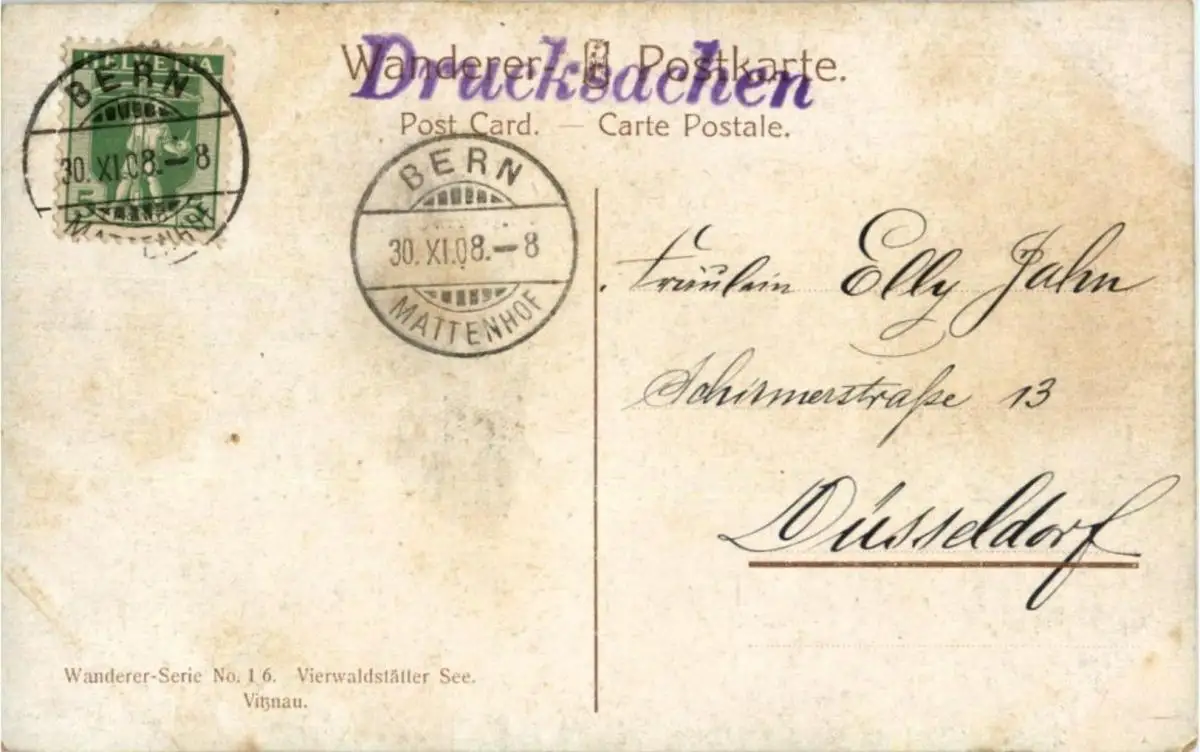 HELVETIA
5
BERN
30. XI.08.–8
MATTENHOF
Wanderer- Postkarte.
Drucksachen
Post Card. — Carte Postale.
BERN
30. XI.08.–8
MATTENHOF
Fräulein Elly Jahn
Schirmerstraße 13
Düsseldorf
Wanderer-Serie No. 16. Vierwaldstätter See.
Vitznau.